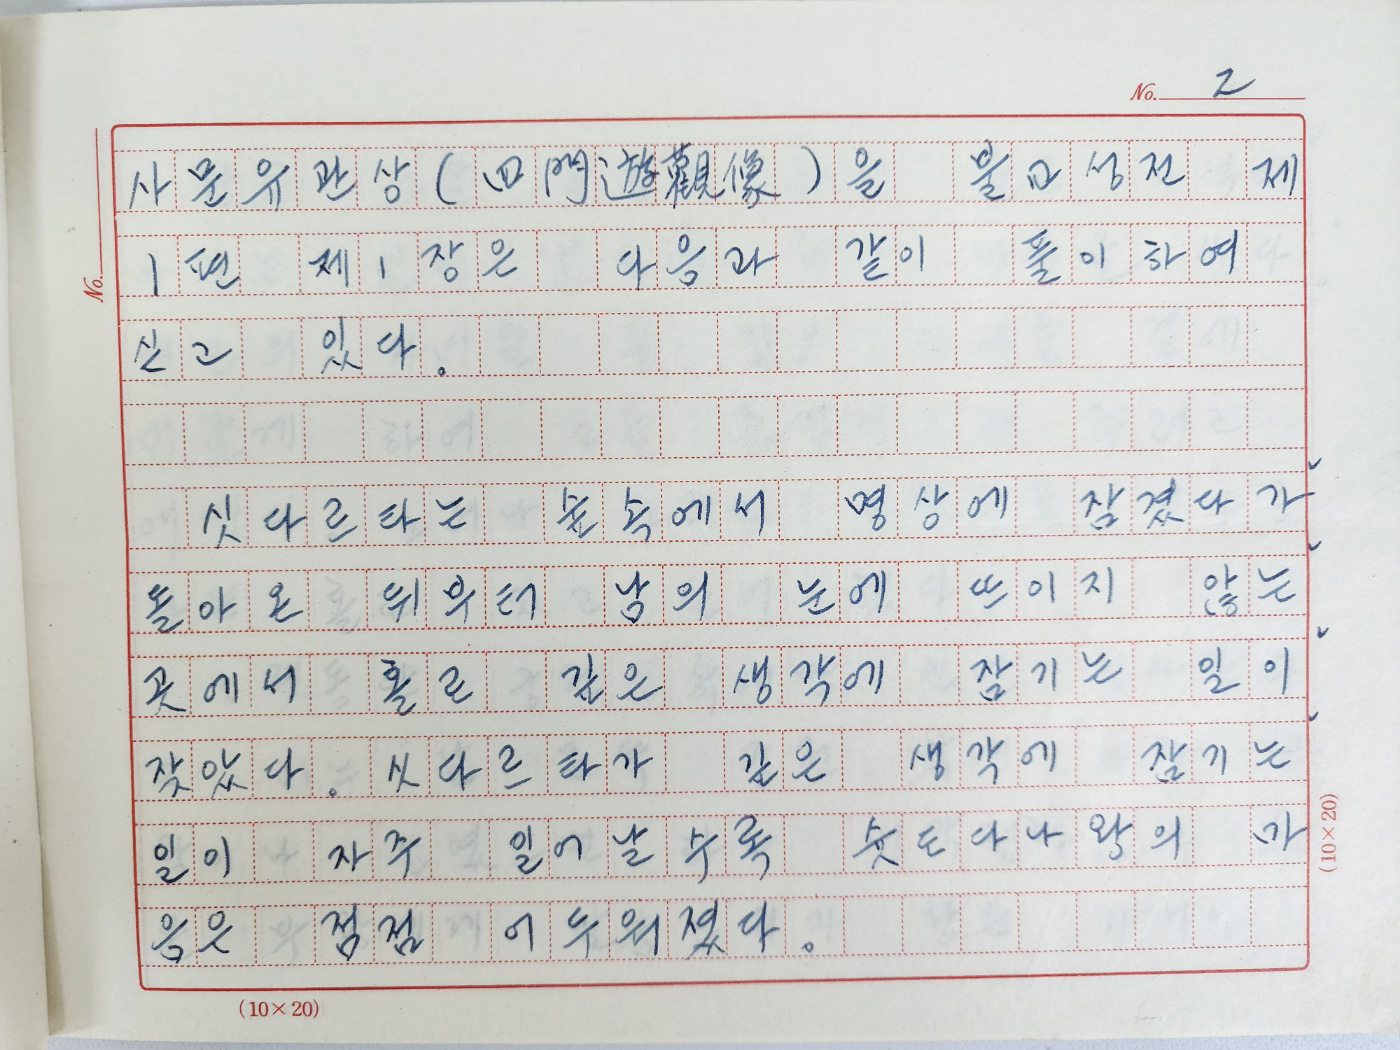 No. 2
사문유관상(四門遊觀像)을 불교성전 제
1편 제1장은 다음과 같이 풀이하여
싣고 있다.
싯다르타는 숲속에서 명상에 잠겼다가
돌아온 뒤부터 남의 눈에 뜨이지 않는
곳에서 홀로 깊은 생각에 잠기는 일이
잦았다. 싯다르타가 깊은 생각에 잠기는
일이 자주 일어날수록 숫도다나왕의 마
음은 점점 어두워졌다.
No.
(10×20)
(10×20)